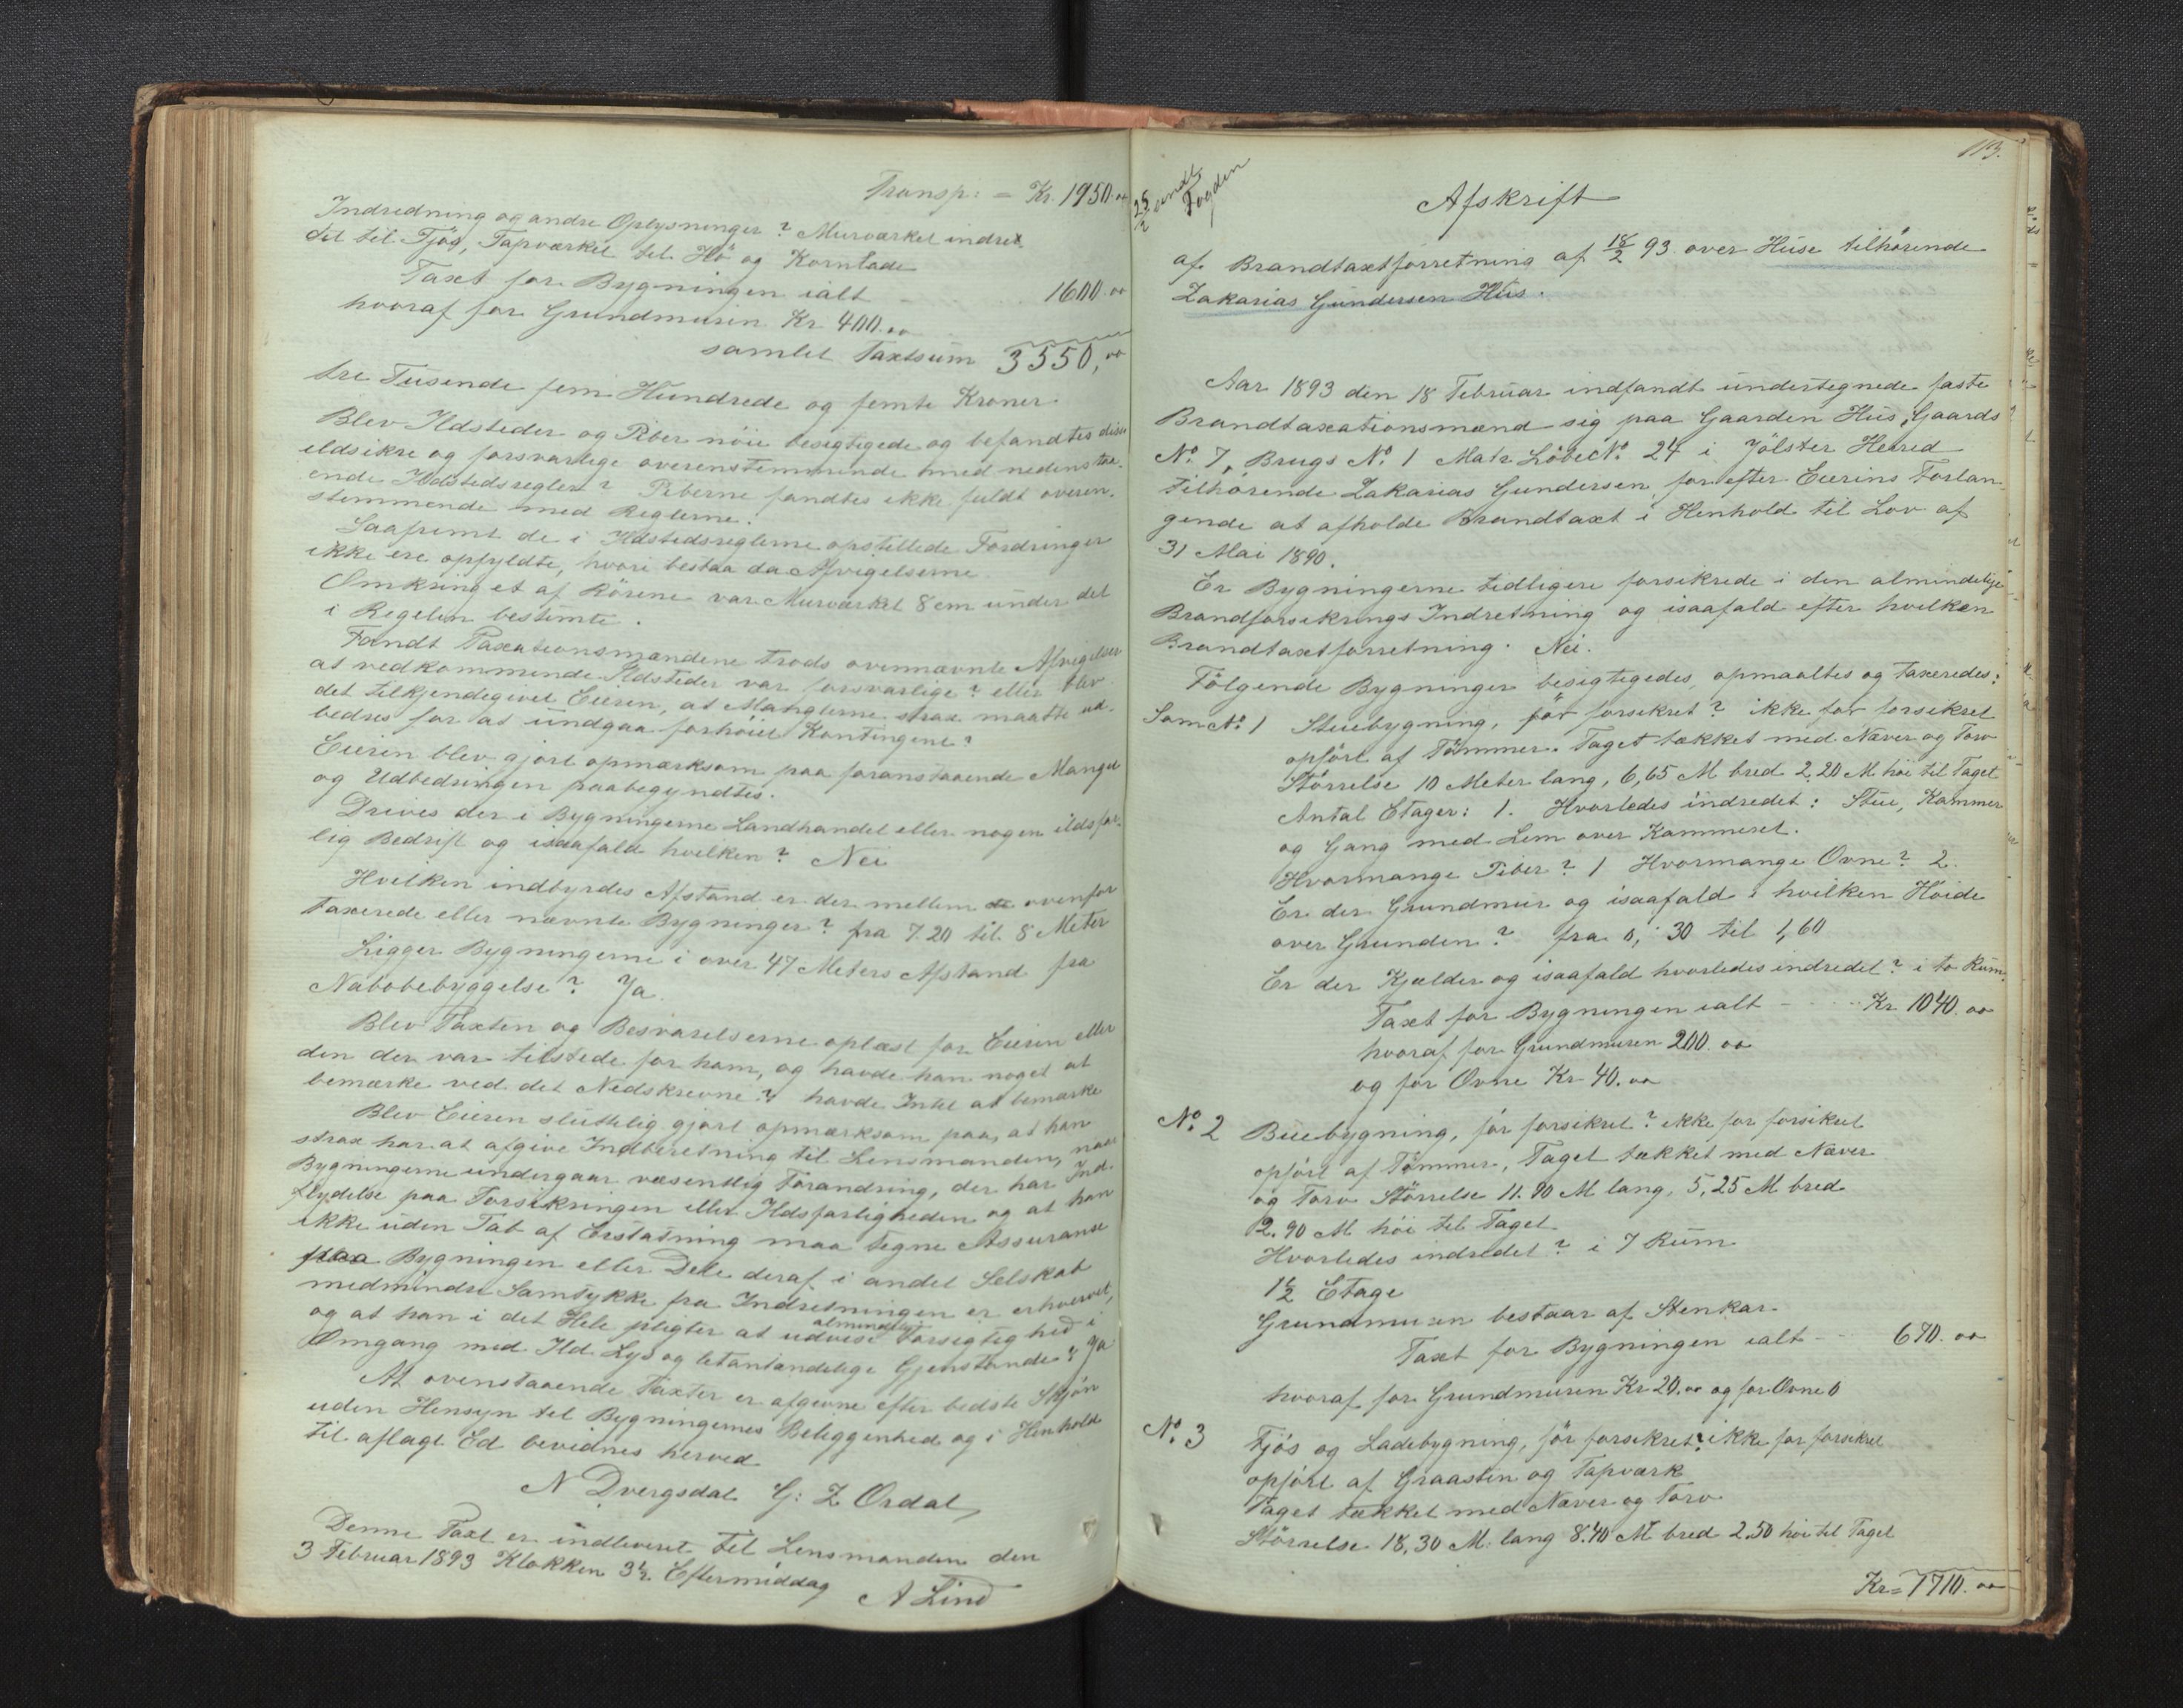 Transp: = Kr. 1950.oo
Indredning og andre Oplysninger? Murværket indret
det til Fjös, Tapværket til Hö og Kornlade
Taxt for Bygningen ialt 1600.oo
hvoraf for Grundmuren Kr 400.oo
samlet Taxtsum 3550,oo
tre Tusende fem Hundrede og femti Kroner.
Blev Ildsteder og Piber nöie besigtigede og befandtes disse
ildsikre og forsvarlige overenstemmende med nedenstaa-
ende Ildstedsregler? Piberne fandtes ikke fuldt overen-
stemmende med Reglerne.
Saafremt de i Ildstedsreglerne opstillede Fordringer
ikke ere opfyldte, hvori bestaa da Afvigelserne
Omkring et af Rörene var Murværket 8 cm under det
i Regelen bestemte.
Fandt Taxationsmændene trods ovennævnte Afvigelser
at vedkommende Ildsteder var forsvarlige? eller blev
det tilkjendegivet Eieren, at Manglerne strax maatte ud-
bedres for at undgaa forhöiet Kontingent?
Eieren blev gjort opmærksom paa foranstaaende Mangel
og Udbedringen paabegyndtes.
Drives der i Bygningerne Landhandel eller nogen ildsfar-
lig Bedrift og isaafald hvilken? Nei
Hvilken indbyrdes Afstand er der mellem de ovenfor
taxerede eller nævnte Bygninger? fra 7.20 til 8 Meter
Ligger Bygningerne i over 47 Meters Afstand fra
Nabobebyggelse? Ja.
Blev Taxten og Besvarelserne oplæst for Eieren eller
den der var tilstede for ham, og havde han noget at
bemærke ved det Nedskrevne? havde Intet at bemærke
Blev Eieren sluttelig gjort opmærksom paa, at han
strax har at afgive Indberetning til Lensmanden, naar
Bygningerne undergaar væsentlig Forandring, der har Ind-
flydelse paa Forsikringen eller Ildsfarligheden og at han
ikke uden Tab af Erstatning maa tegne Assurance
paa Bygningen eller Dele deraf i andet Selskab
medmindre Samtykke fra Indretningen er erhvervet,
og at han i det Hele pligter at udvise almindelig Forsigtighed i
Omgang med Ild Lys og letantændelige Gjenstande? Ja
At ovenstaaende Taxter er afgivne efter bedste Skjön
uden Hensyn til Bygningernes Beliggenhed og i Henhold
til aflagt Ed bevidnes herved
N Dvergsdal G: Z Ordal,
Denne Taxt er indleveret til Lensmanden den
3 Februar 1893 Klokken 3½ Eftermiddag
A Lind
113.
25/2 sendt Fogden
Afskrift
af Brandtaxtforretning af 18/2 93 over Huse tilhörende
Zakarias Gundersen Hus.
Aar 1893 den 18 Februar indfandt undertegnede faste
Brandtaxationsmænd sig paa Gaarden Hus, Gaards
No. 7, Brugs No. 1 Matr Löbe No. 24 i Jölster Herred
tilhörende Zakarias Gundersen, for efter Eierens Forlan-
gende at afholde Brandtaxt i Henhold til Lov af
31 Mai 1890.
Er Bygningerne tidligere forsikrede i den almindelige
Brandforsikrings Indretning og isaafald efter hvilken
Brandtaxtforretning. Nei.
Fölgende Bygninger besigtigedes, opmaaltes og taxeredes:
Som No. 1 Stuebygning, för forsikret? ikke för forsikret
opfört af Tömmer. Taget tækket med Næver og Torv
Störrelse 10 Meter lang, 6,65 M bred 2,20 M höi til Taget
Antal Etager: 1. Hvorledes indredet: Stue, Kammer
og Gang med Lem over Kammeret.
Hvormange Piber? 1 Hvormange Ovne? 2.
Er der Grundmur og isaafald i hvilken Höide
over Grunden? fra 0,30 til 1,60
Er der Kjelder og isaafald hvorledes indredet? i to Rum.
Taxt for Bygningen ialt - Kr 1040.oo
hvoraf for Grundmuren 200.oo
og for Ovne Kr 40.oo
No. 2 Buebygning, för forsikret? ikke för forsikret
opfört af Tömmer, Taget tækket med Næver
og Torv Störrelse 11.90 M lang, 5,25 M bred
2.90 M höi til Taget
Hvorledes indredet? i 7 Rum
1½ Etage
Grundmuren bestaar af Stenkar
Taxt for Bygningen ialt - 670.oo
hvoraf for Grundmuren Kr 20.oo og for Ovne 0
No. 3 Fjös og Ladebygning, för forsikret? ikke för forsikret
opfört af Graasten og Tapværk
Taget tækket med Næver og Torv
Störrelse 18,30 M. lang 8.40 M bred 2.50 höi til Taget
Kr = 1710.oo